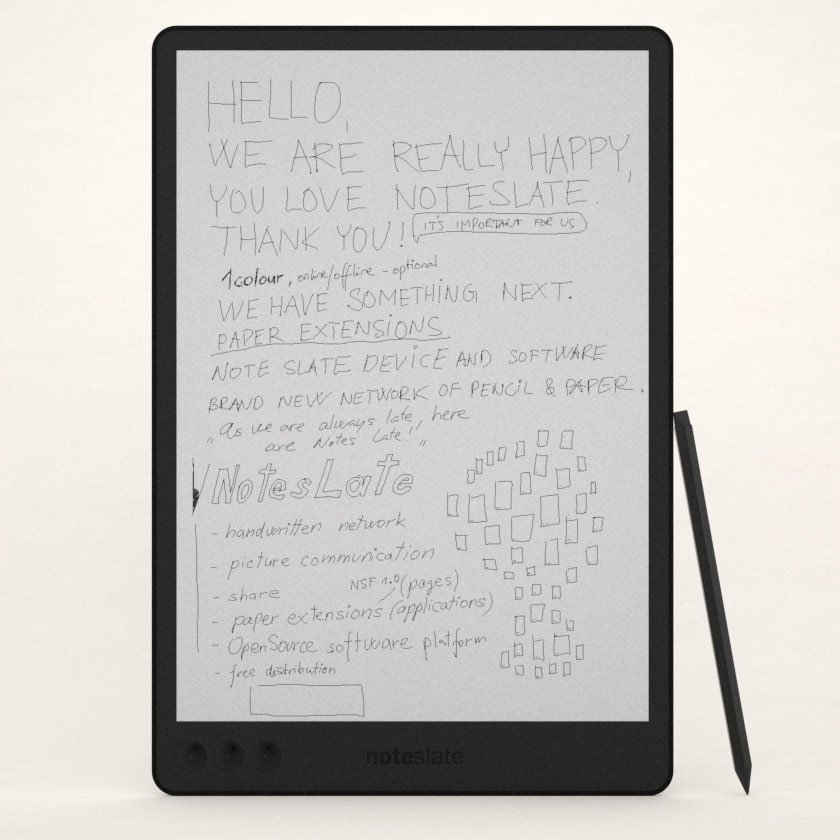 HELLO,
WE ARE REALLY HAPPY,
YOU LOVE NOTESLATE.
THANK YOU!
IT'S IMPORTANT FOR US
1colour, online/offline - optional
WE HAVE SOMETHING NEXT.
PAPER EXTENSIONS
NOTE SLATE DEVICE AND SOFTWARE
BRAND NEW NETWORK OF PENCIL & PAPER.
„As we are always late, here
are Notes Late!"
NotesLate
- handwritten network
- picture communication
- share NSF 1.0 (pages)
- paper extensions (applications)
- OpenSource software platform
- free distribution
noteslate